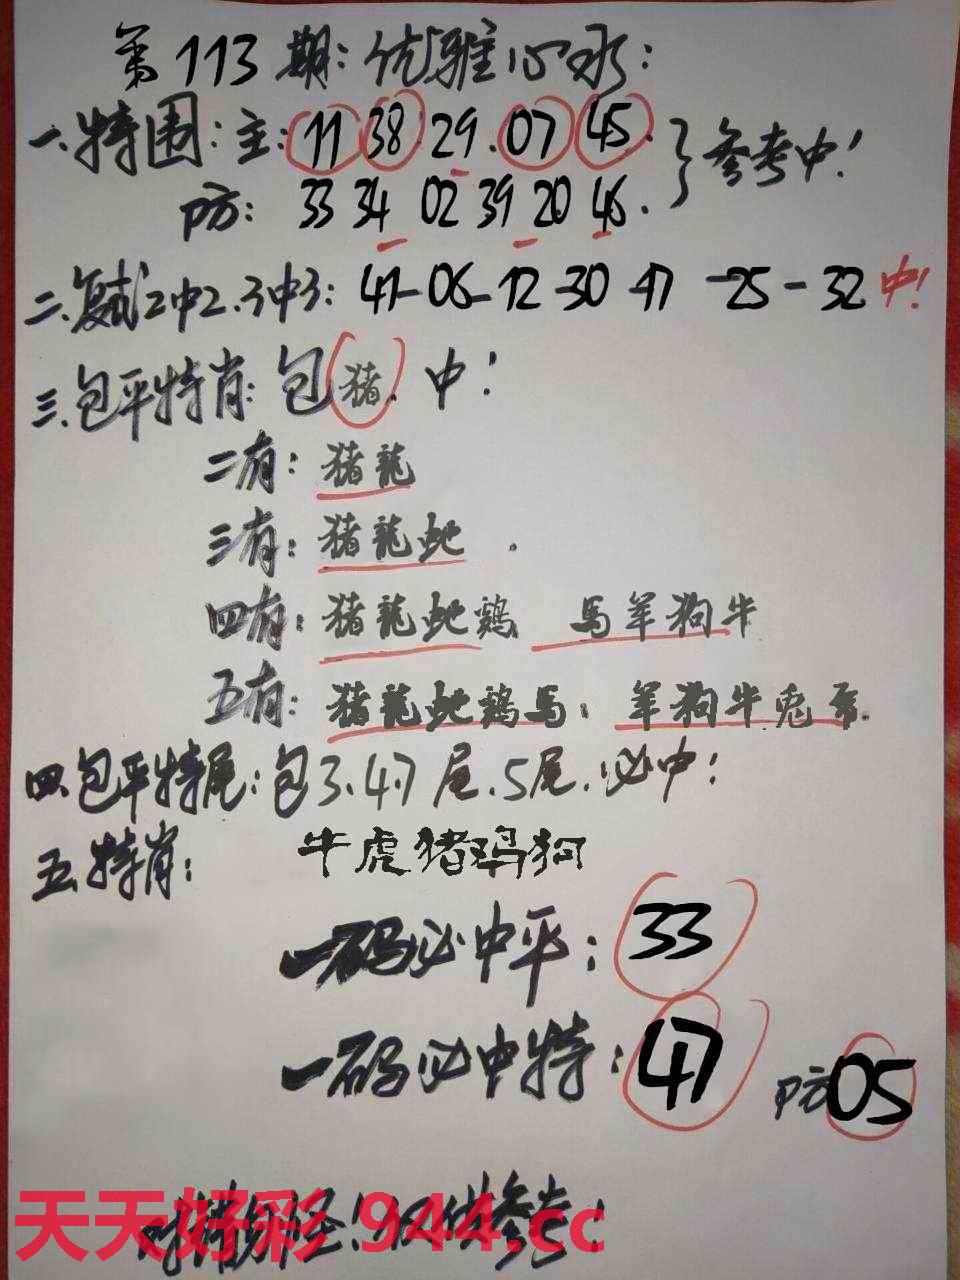 第113期:优雅心水:
一.特围:主:11 38 29.07 45.}参考中!
防: 33 34 02 39 20 46.
二.复式2中2.3中3: 47-06-12-30-17-25-32 中!
三.包平特肖:包猪.中!
二有:猪龍
三有:猪龍蛇.
四有:猪龍蛇鷄 馬羊狗牛
五有:猪龍蛇鷄馬:羊狗牛兎
四.包平特尾:包3.4.7尾.5尾.必中!
五.特肖: 牛虎猪鸡狗
一码必中平:33
一码必中特:47 防05
对错勿怪!仅供参考!
天天好彩.944.cc